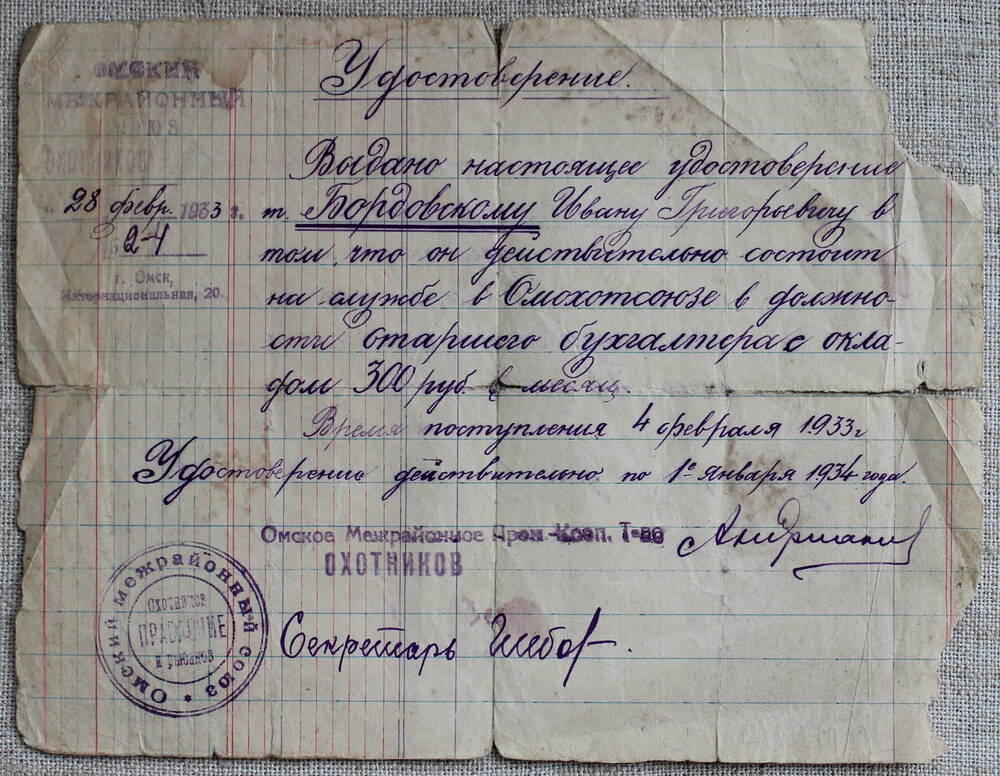 ОМСКИЙ
МЕЖРАЙОННЫЙ
СОЮЗ
ОХОТНИКОВ
28 февр. 1933 г.
№ 2-4
г. Омск,
Интернациональная, 20.
Удостоверение.
Выдано настоящее удостоверение
т. Бордовскому Ивану Григорьевичу в
том, что он действительно состоит
на службе в Омохотсоюзе в должно-
сти старшего бухгалтера с окла-
дом 300 руб. в месяц.
Время поступления 4 февраля 1933 г
Удостоверение действительно по 1е января 1934 года.
Омское Межрайонное Пром-Кооп. Т-во
ОХОТНИКОВ
Омский межрайонный союз
Охотников
ПРАВЛЕНИЕ
и рыбаков
Секретарь